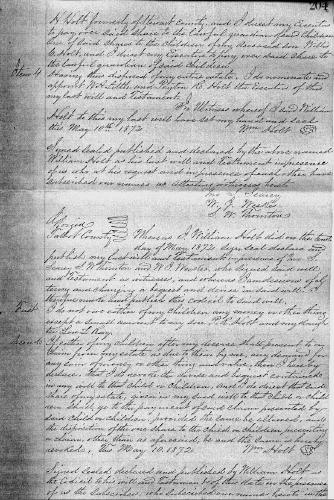 204
H Holt formerly of Stewart County, and I direct my Executors
to pay over said share to the lawful guardian of said Children
of my deceased son, Willis
H Holt, and I direct my Executors to pay over said share to
the lawful guardian of said Children
Item 4
Having thus disposed of my entire estate. I do nominate and
appoint and Peyton H. Holt the Executors of this
my last will and testament.
In Witness whereof I said William
Holt to this my last will have set my hand and seal
this May 10th 1872. Wm Holt
Signed Sealed published and declared by the above named
William Holt as his last will and testament in presence
of us who at his request and in presence of each other have
subscribed our names as attesting witnesses hereto
W. J. Weston
S. W. Thornton
Georgia
Talbot County
Whereas I William Holt did on the tenth
day of May 1872 sign seal declare and
publish my last will and testament in presence of
S W Thornton and W. J. Weston, who signed said will
and testament as witnesses, and whereas I am desirous of al-
tering and changing a bequest and devise in said will I
therefore make and publish this codicil to said will.
First
I do not owe either of my children any money or other thing
except a small amount to my son P. H. Holt and my daugh-
ter
Second
If either of my children after my decease shall present to my
claim from my estate as due to them by me, any demand for
any sum of money or other thing
declared that I do revoke the devise and bequest contained
in my will to that Child or Children, and I do direct that said
share of my estate, given in my said will to that Child or Chil-
dren shall go to the payment of said claim presented by
said Child or Children, provided the same be allowed, and
the disposition of the one share to the Child or Children presenting
a claim, other than as aforesaid, be and the same is hereby
revoked, this May 10. 1872. Wm Holt
Signed Sealed declared and published by William Holt as
the Codicil to his will and testament of this date in presence
of us the Subscribers, who subscribed our names hereto in